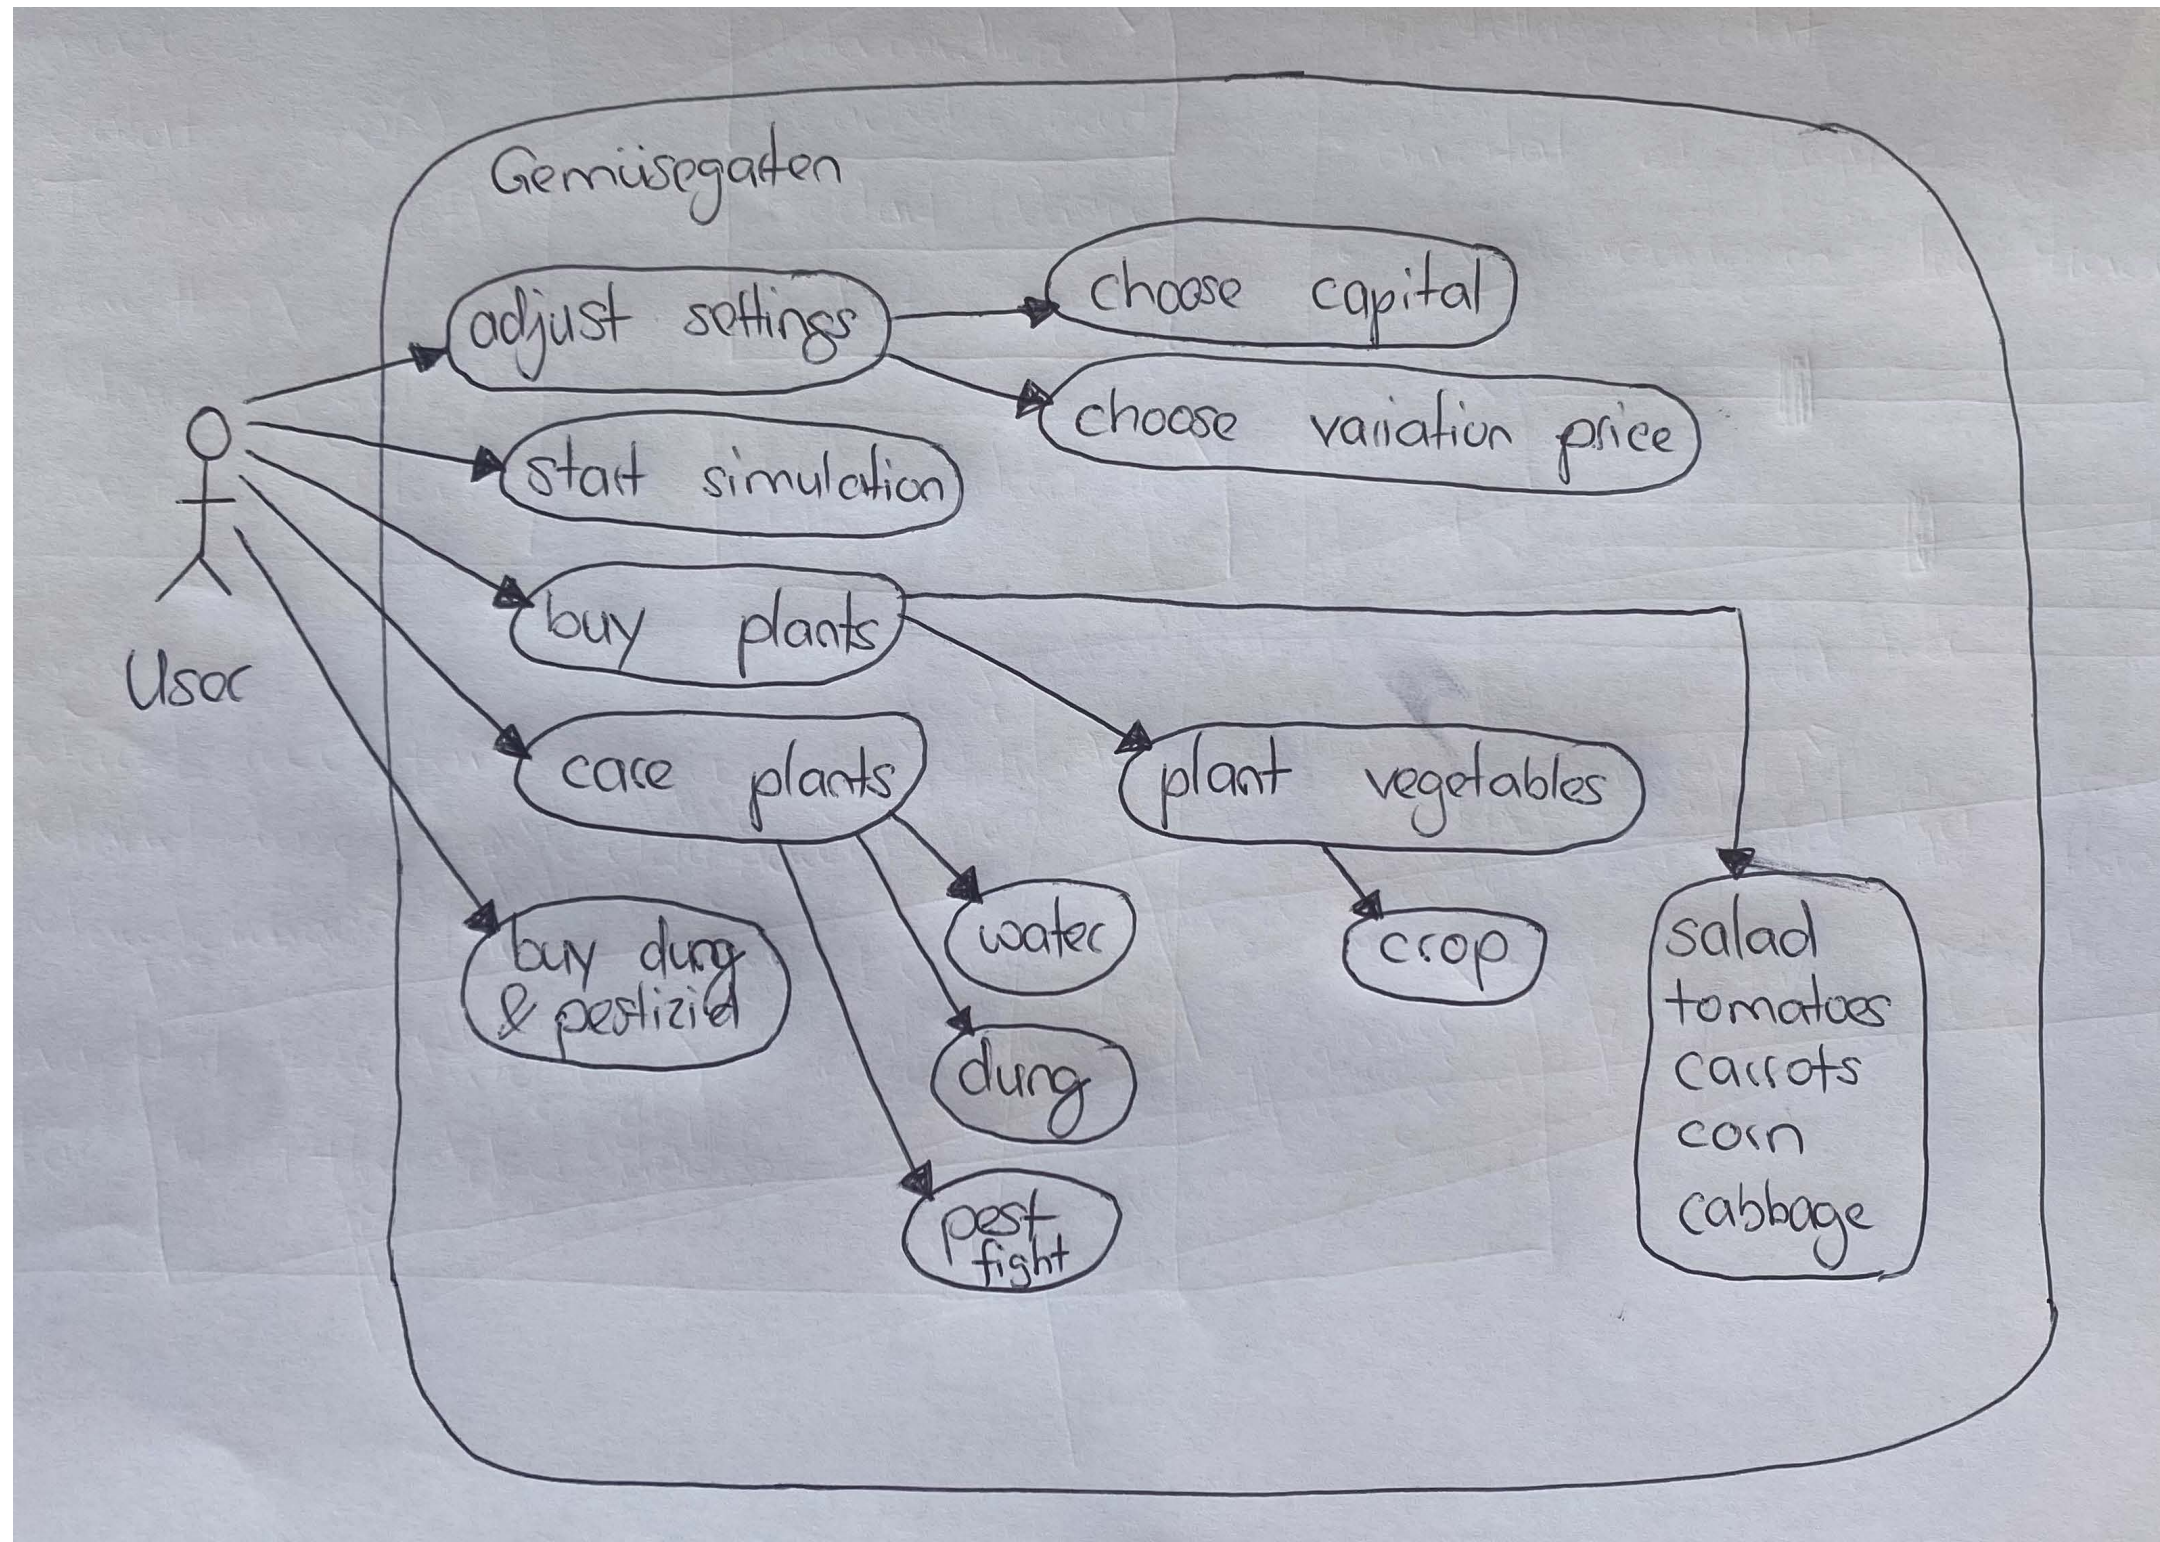 Gemüsegarten
adjust settings
choose capital
choose variation price
start simulation
buy plants
User
care plants
plant vegetables
buy dung
& pestizid
water
crop
dung
pest
fight
salad
tomatoes
carrots
corn
cabbage